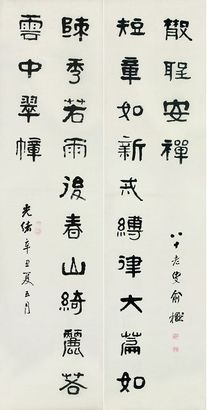 疎秀若雨後春山綺麗若
雲中翠幛
光緒辛丑夏五月
短章如新戒縛律大篇如
散聖安禪
八十老叟俞樾